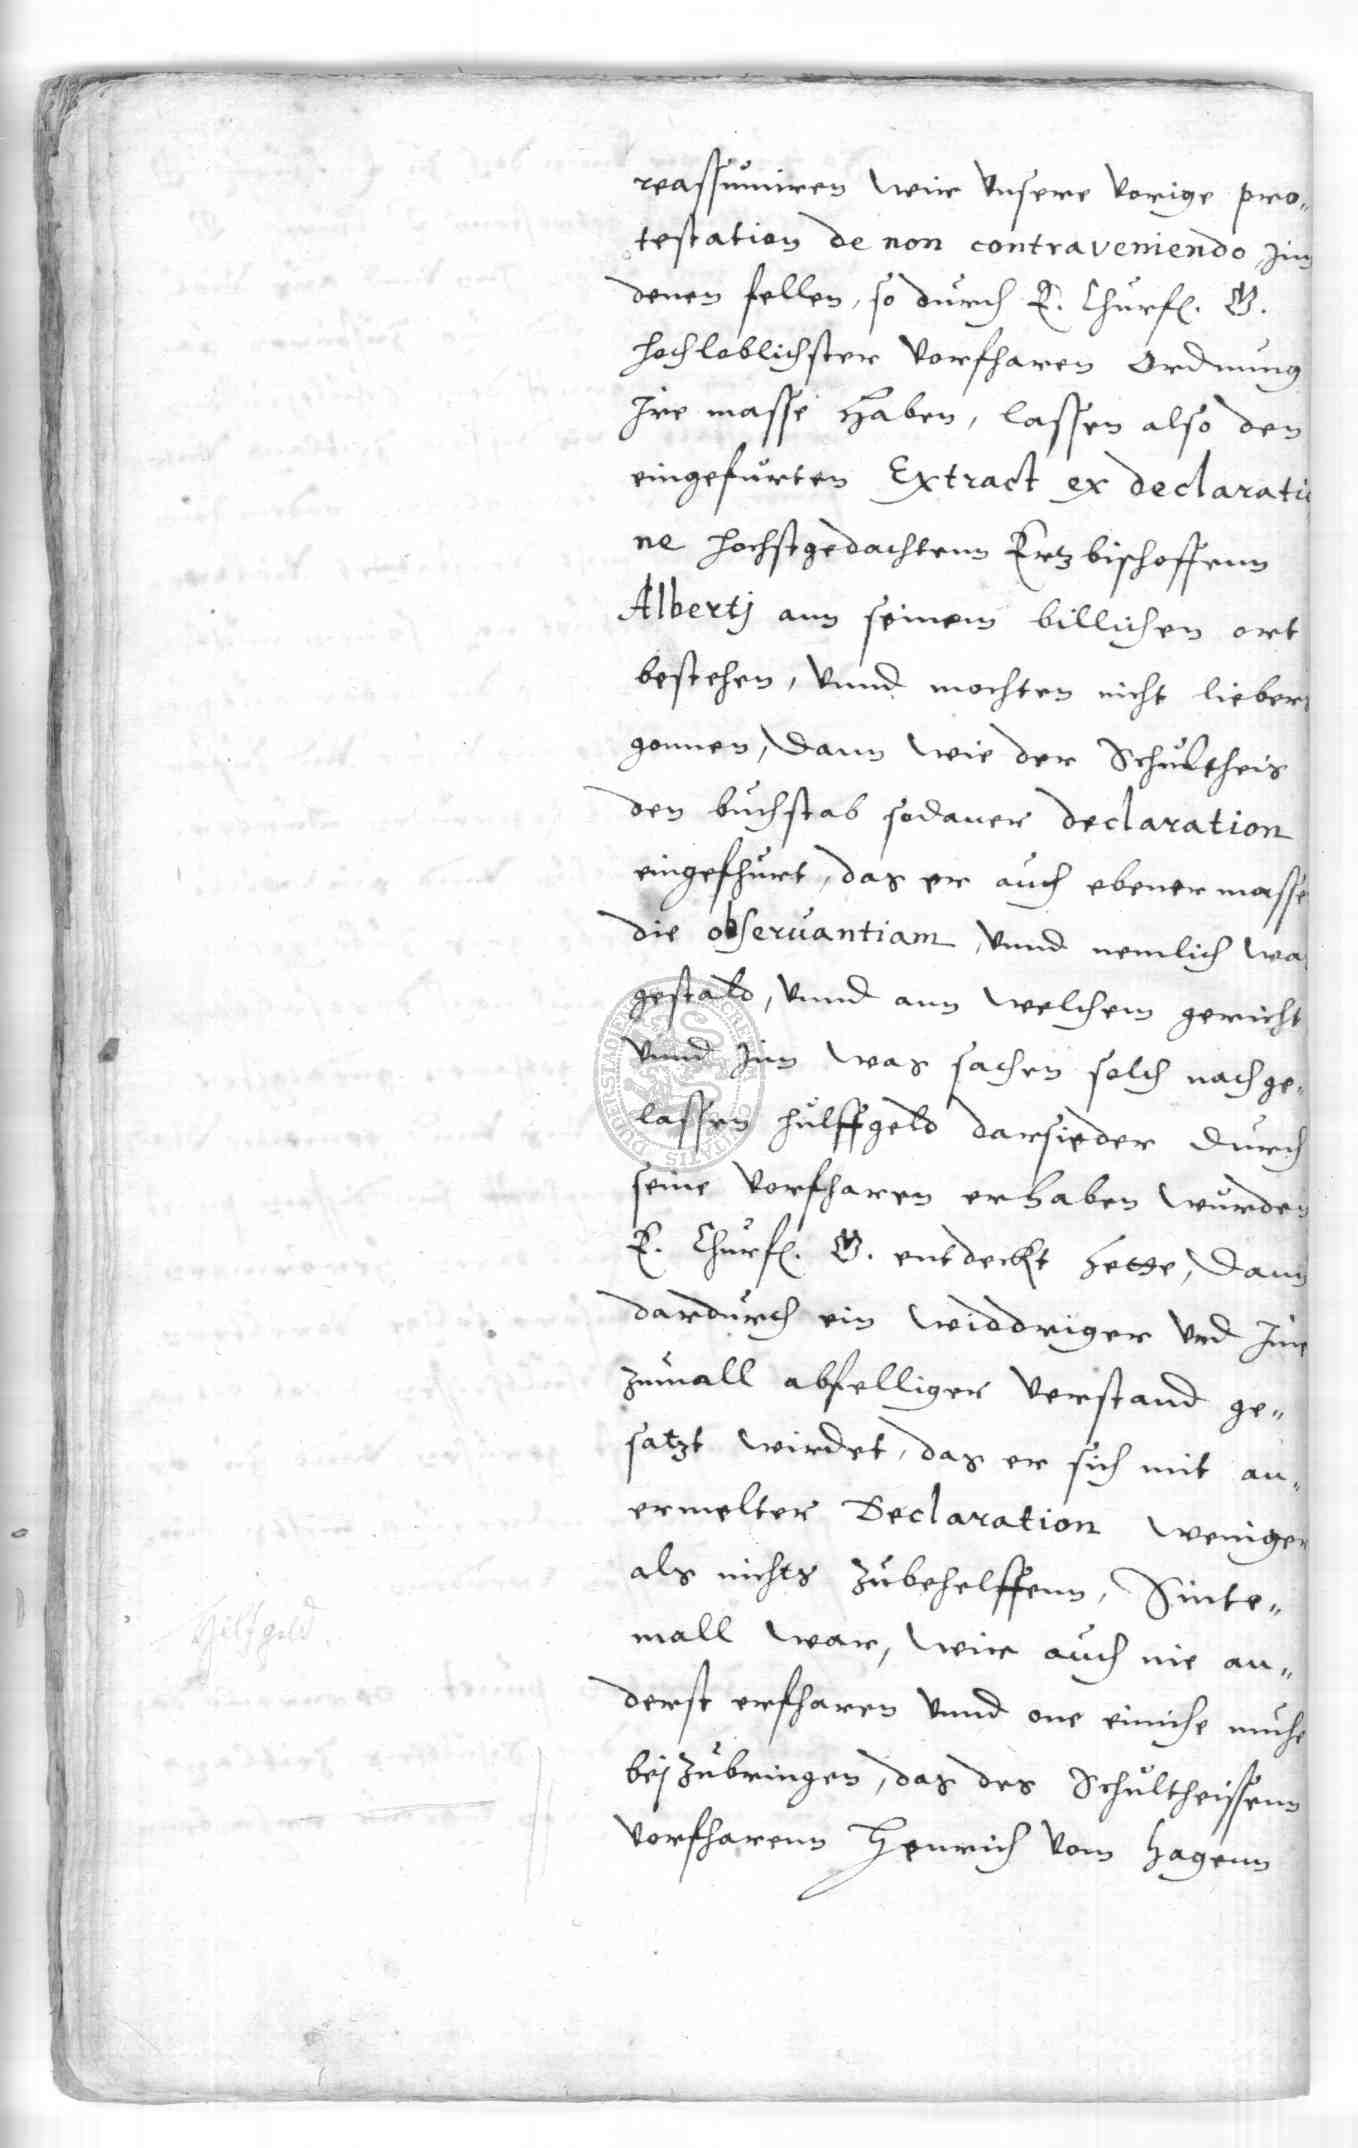 reassumiren wir unsere vorige pro-
testation de non contraveniendo, jnn
denen fellen, so durch E. Churf. G.
hochloblichster vorfharen ordnung
Jre masse haben, lassen also den
eingefurten Extract ex declaratio
ne hochstgedachtenn Ertzbischoffenn
Albertj ann seinem billichen ort
bestehen, unnd mochten nicht liebers
gonnen, dann wie der Schultheis
den buchstab sodaner declaration
eingefhurt, das er auch ebener massen
die observantiam, unnd nemlich was
gestald, unnd ann welchem gericht
unnd jnn was sachen solch nachge-
lassen hulffgeld darsieder durch
seine vorfharen erhaben wurden
E. Churf. G. entdeckt hette, dann
dardurch ein widdriger und Jme
zumall abfelliger verstand ge-
satzt wirdet, das er sich mit an-
ermelter Declaration weniger
als nichts zubehelffenn, Sinte-
mall war, wir auch nie an-
derst erfharen unnd one einiche muhe
beizubringen, das des Schultheissenn
vorfharenn Henrich vom Hagenn
Hilfgeld.